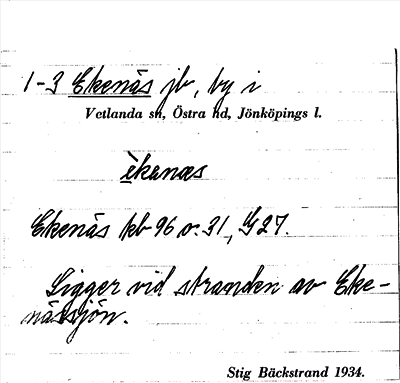 1-3 Ekenäs jb, by i
Vetlanda sn, Östra hd, Jönköpings l.
èkenæs
Ekenäs kb 96 o. 31, G27.
Ligger vid stranden av Eke-
nässjön.
Stig Bäckstrand 1934.